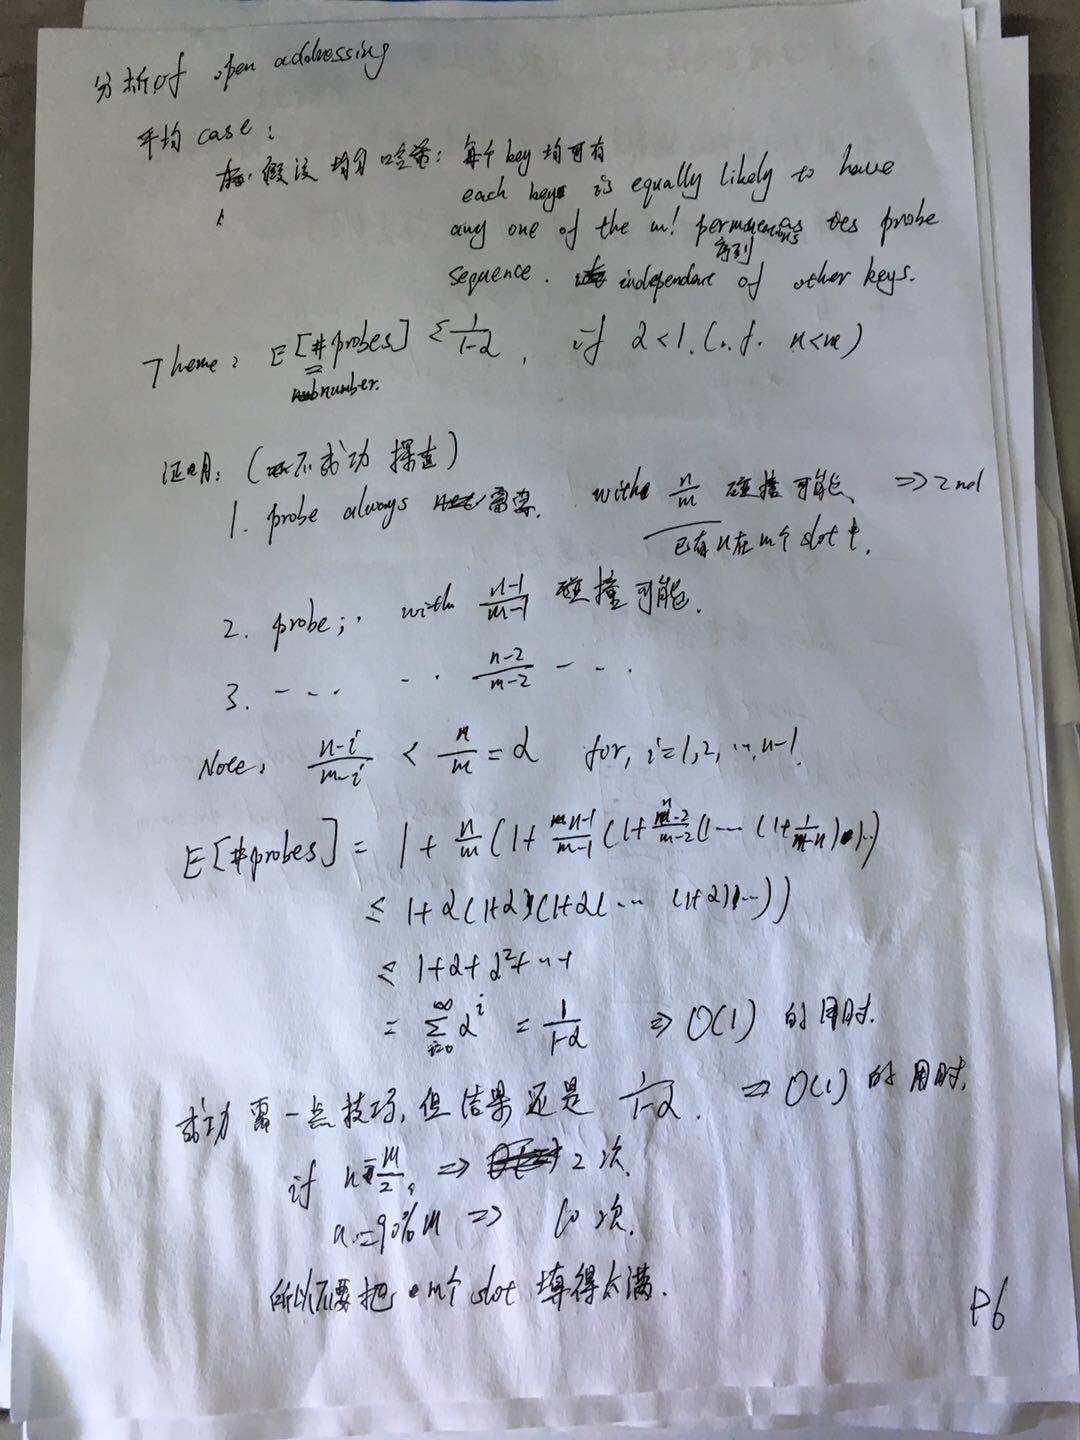 分析of open addressing
平均 case:
假设均匀哈希: 每个 key 均可有
each key is equally likely to have
any one of the m! permutations as its probe
序列
sequence. independent of other keys.
Theme: E[#probes] ≤ 1/(1-α), if α<1. (i.e. n<m)
number.
证明: (不成功探查)
1. probe always 需要. with n/m 碰撞可能 => 2nd
已有n在m个slot中.
2. probe; with (n-1)/(m-1) 碰撞可能.
3. --- -- (n-2)/(m-2) ---
Note, (n-i)/(m-i) < n/m = α for, i=1,2,…,n-1.
E[#probes] = 1 + n/m (1 + (n-1)/(m-1) (1 + (n-2)/(m-2) (1 … (1 + 1/(m-n)) …)
≤ 1+α(1+α)(1+α( … (1+α))…))
≤ 1+α+α²+…+
= Σ_{i=0}^{∞} α^i = 1/(1-α) => O(1) 的用时.
成功需一点技巧, 但结果还是 1/(1-α). => O(1) 的用时.
if n=m/2, => 2次.
n=90%m => 10次.
所以不要把m个slot填得太满.
P6